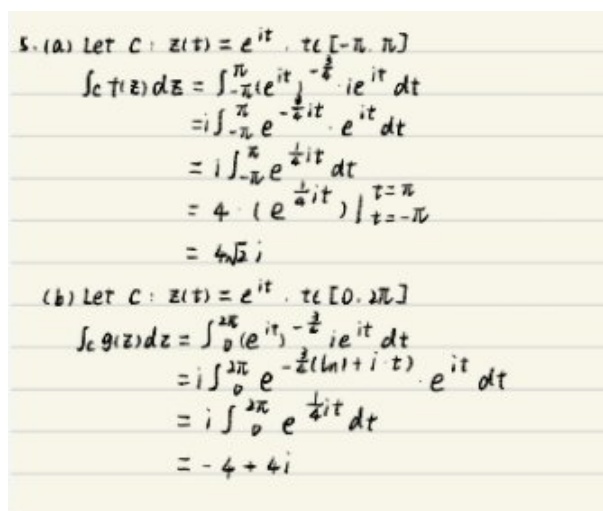 5.(a) Let C: z(t) = e^{it}, t∈[-π, π]
∫_C f(z)dz = ∫_{-π}^{π} (e^{it})^{-3/4} · ie^{it} dt
= i∫_{-π}^{π} e^{-3/4 it} · e^{it} dt
= i∫_{-π}^{π} e^{1/4 it} dt
= 4 · (e^{1/4 it})|_{t=-π}^{t=π}
= 4√2 i
(b) Let C: z(t) = e^{it}, t∈[0, 2π]
∫_C g(z)dz = ∫_0^{2π} (e^{it})^{-3/4} ie^{it} dt
= i∫_0^{2π} e^{-3/4(ln1 + i·t)} · e^{it} dt
= i∫_0^{2π} e^{1/4 it} dt
= -4 + 4i